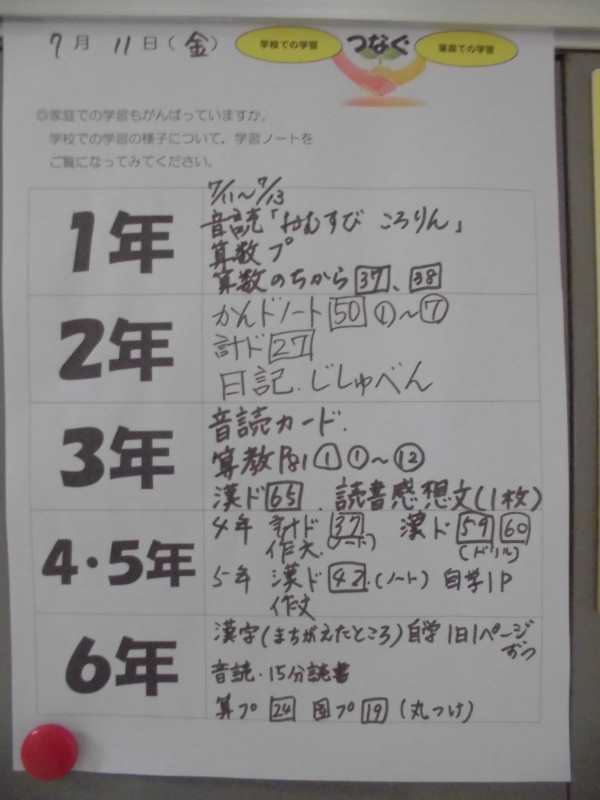 7月 11日(金)
学校での学習
つなぐ
家庭での学習
◎家庭での学習もがんばっていますか。
学校での学習の様子について、学習ノートを
ご覧になってみてください。
1年
7/11～7/13
音読「おむすび ころりん」
算数プ
算数のちから 37、38
2年
かんドノート 50 ①～⑦
計ド 27
日記.じしゅべん
3年
音読カード.
算数P81 ① ①～⑫
漢ド 65 . 読書感想文(1枚)
4・5年
4年 計ド 37 (ノート) 漢ド 59 60 (ドリル)
作文.
5年 漢ド 42.(ノート) 自学1P
作文
6年
漢字(まちがえたところ)自学1日1ページずつ
音読・15分読書
算プ 24 国プ 19 (丸つけ)